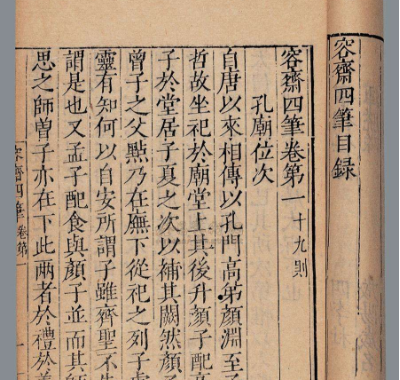 容齋四筆目録
容齋四筆卷第一 十九則
孔廟位次
自唐以來相傳以孔門高弟顔淵至子
哲故坐祀於廟堂上其後升顔子配
子於堂居子夏之次以補其闕然顔
曾子之父點乃在廡下從祀之列子
靈有知何以自安所謂子雖齊聖不
謂是也又孟子配食與顔子並而其師
思之師曽子亦在下此兩者於禮於
容齋四筆 卷第一